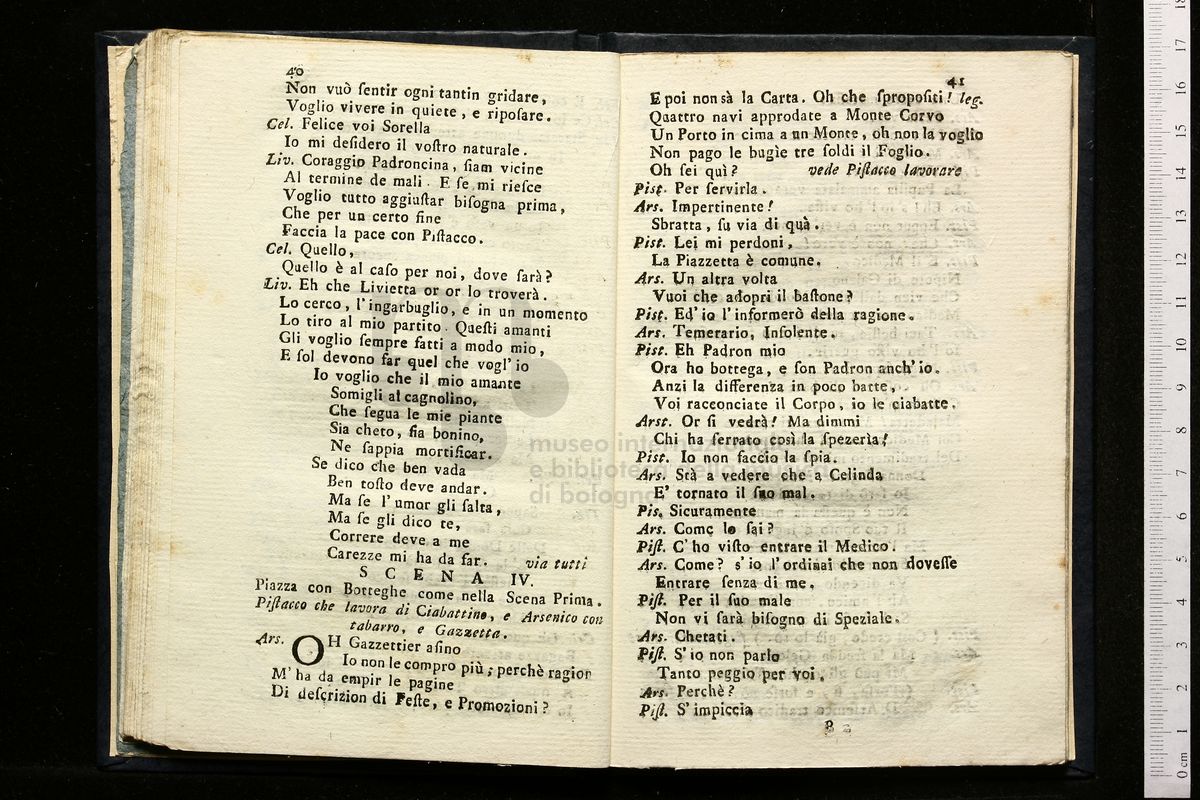 40
Non vuò ſentir ogni tantin gridare,
Voglio vivere in quiete, e ripoſare.
Cel. Felice voi Sorella
Io mi deſidero il voſtro naturale.
Liv. Coraggio Padroncina, ſiam vicine
Al termine de mali. E ſe mi rieſce
Voglio tutto aggiuſtar biſogna prima,
Che per un certo fine
Faccia la pace con Piſtacco.
Cel. Quello,
Quello è al caſo per noi, dove ſarà?
Liv. Eh che Livietta or or lo troverà.
Lo cerco, l'ingarbuglio, e in un momento
Lo tiro al mio partito. Queſti amanti
Gli voglio ſempre fatti a modo mio,
E ſol devono far quel che vogl'io
Io voglio che il mio amante
Somigli al cagnolino,
Che ſegua le mie piante
Sia cheto, ſia bonino,
Ne ſappia mortificar.
Se dico che ben vada
Ben toſto deve andar.
Ma ſe l'umor gli ſalta,
Ma ſe gli dico te,
Correre deve a me
Carezze mi ha da far. via tutti
SCENA IV.
Piazza con Botteghe come nella Scena Prima.
Piſtacco che lavora di Ciabattino, e Arſenico con
tabarro, e Gazzetta.
Ars. OH Gazzettier aſino
Io non le compro più; perchè ragion
M'ha da empir le pagine
Di deſcrizion di Feſte, e Promozioni?
41
E poi non sà la Carta. Oh che ſpropoſiti! leg.
Quattro navi approdate a Monte Corvo
Un Porto in cima a un Monte, oh non la voglio
Non pago le bugìe tre ſoldi il Foglio.
Oh ſei quì? vede Piſtacco lavorare
Piſt. Per ſervirla.
Ars. Impertinente!
Sbratta, ſu via di quà.
Piſt. Lei mi perdoni,
La Piazzetta è comune.
Ars. Un altra volta
Vuoi che adopri il baſtone?
Piſt. Ed'io l'informerò della ragione.
Ars. Temerario, Inſolente.
Piſt. Eh Padron mio
Ora ho bottega, e ſon Padron anch'io.
Anzi la differenza in poco batte,
Voi racconciate il Corpo, io le ciabatte.
Arst. Or ſi vedrà! Ma dimmi
Chi ha ſerrato così la ſpezerìa!
Piſt. Io non faccio la ſpia.
Ars. Stà a vedere che a Celinda
E' tornato il ſuo mal.
Pis. Sicuramente
Ars. Come lo ſai?
Piſt. C'ho viſto entrare il Medico.
Ars. Come? s'io l'ordinai che non doveſſe
Entrare ſenza di me.
Piſt. Per il ſuo male
Non vi ſarà biſogno di Speziale.
Ars. Chetati.
Piſt. S'io non parlo
Tanto peggio per voi.
Ars. Perchè?
Piſt. S'impiccia
B 2